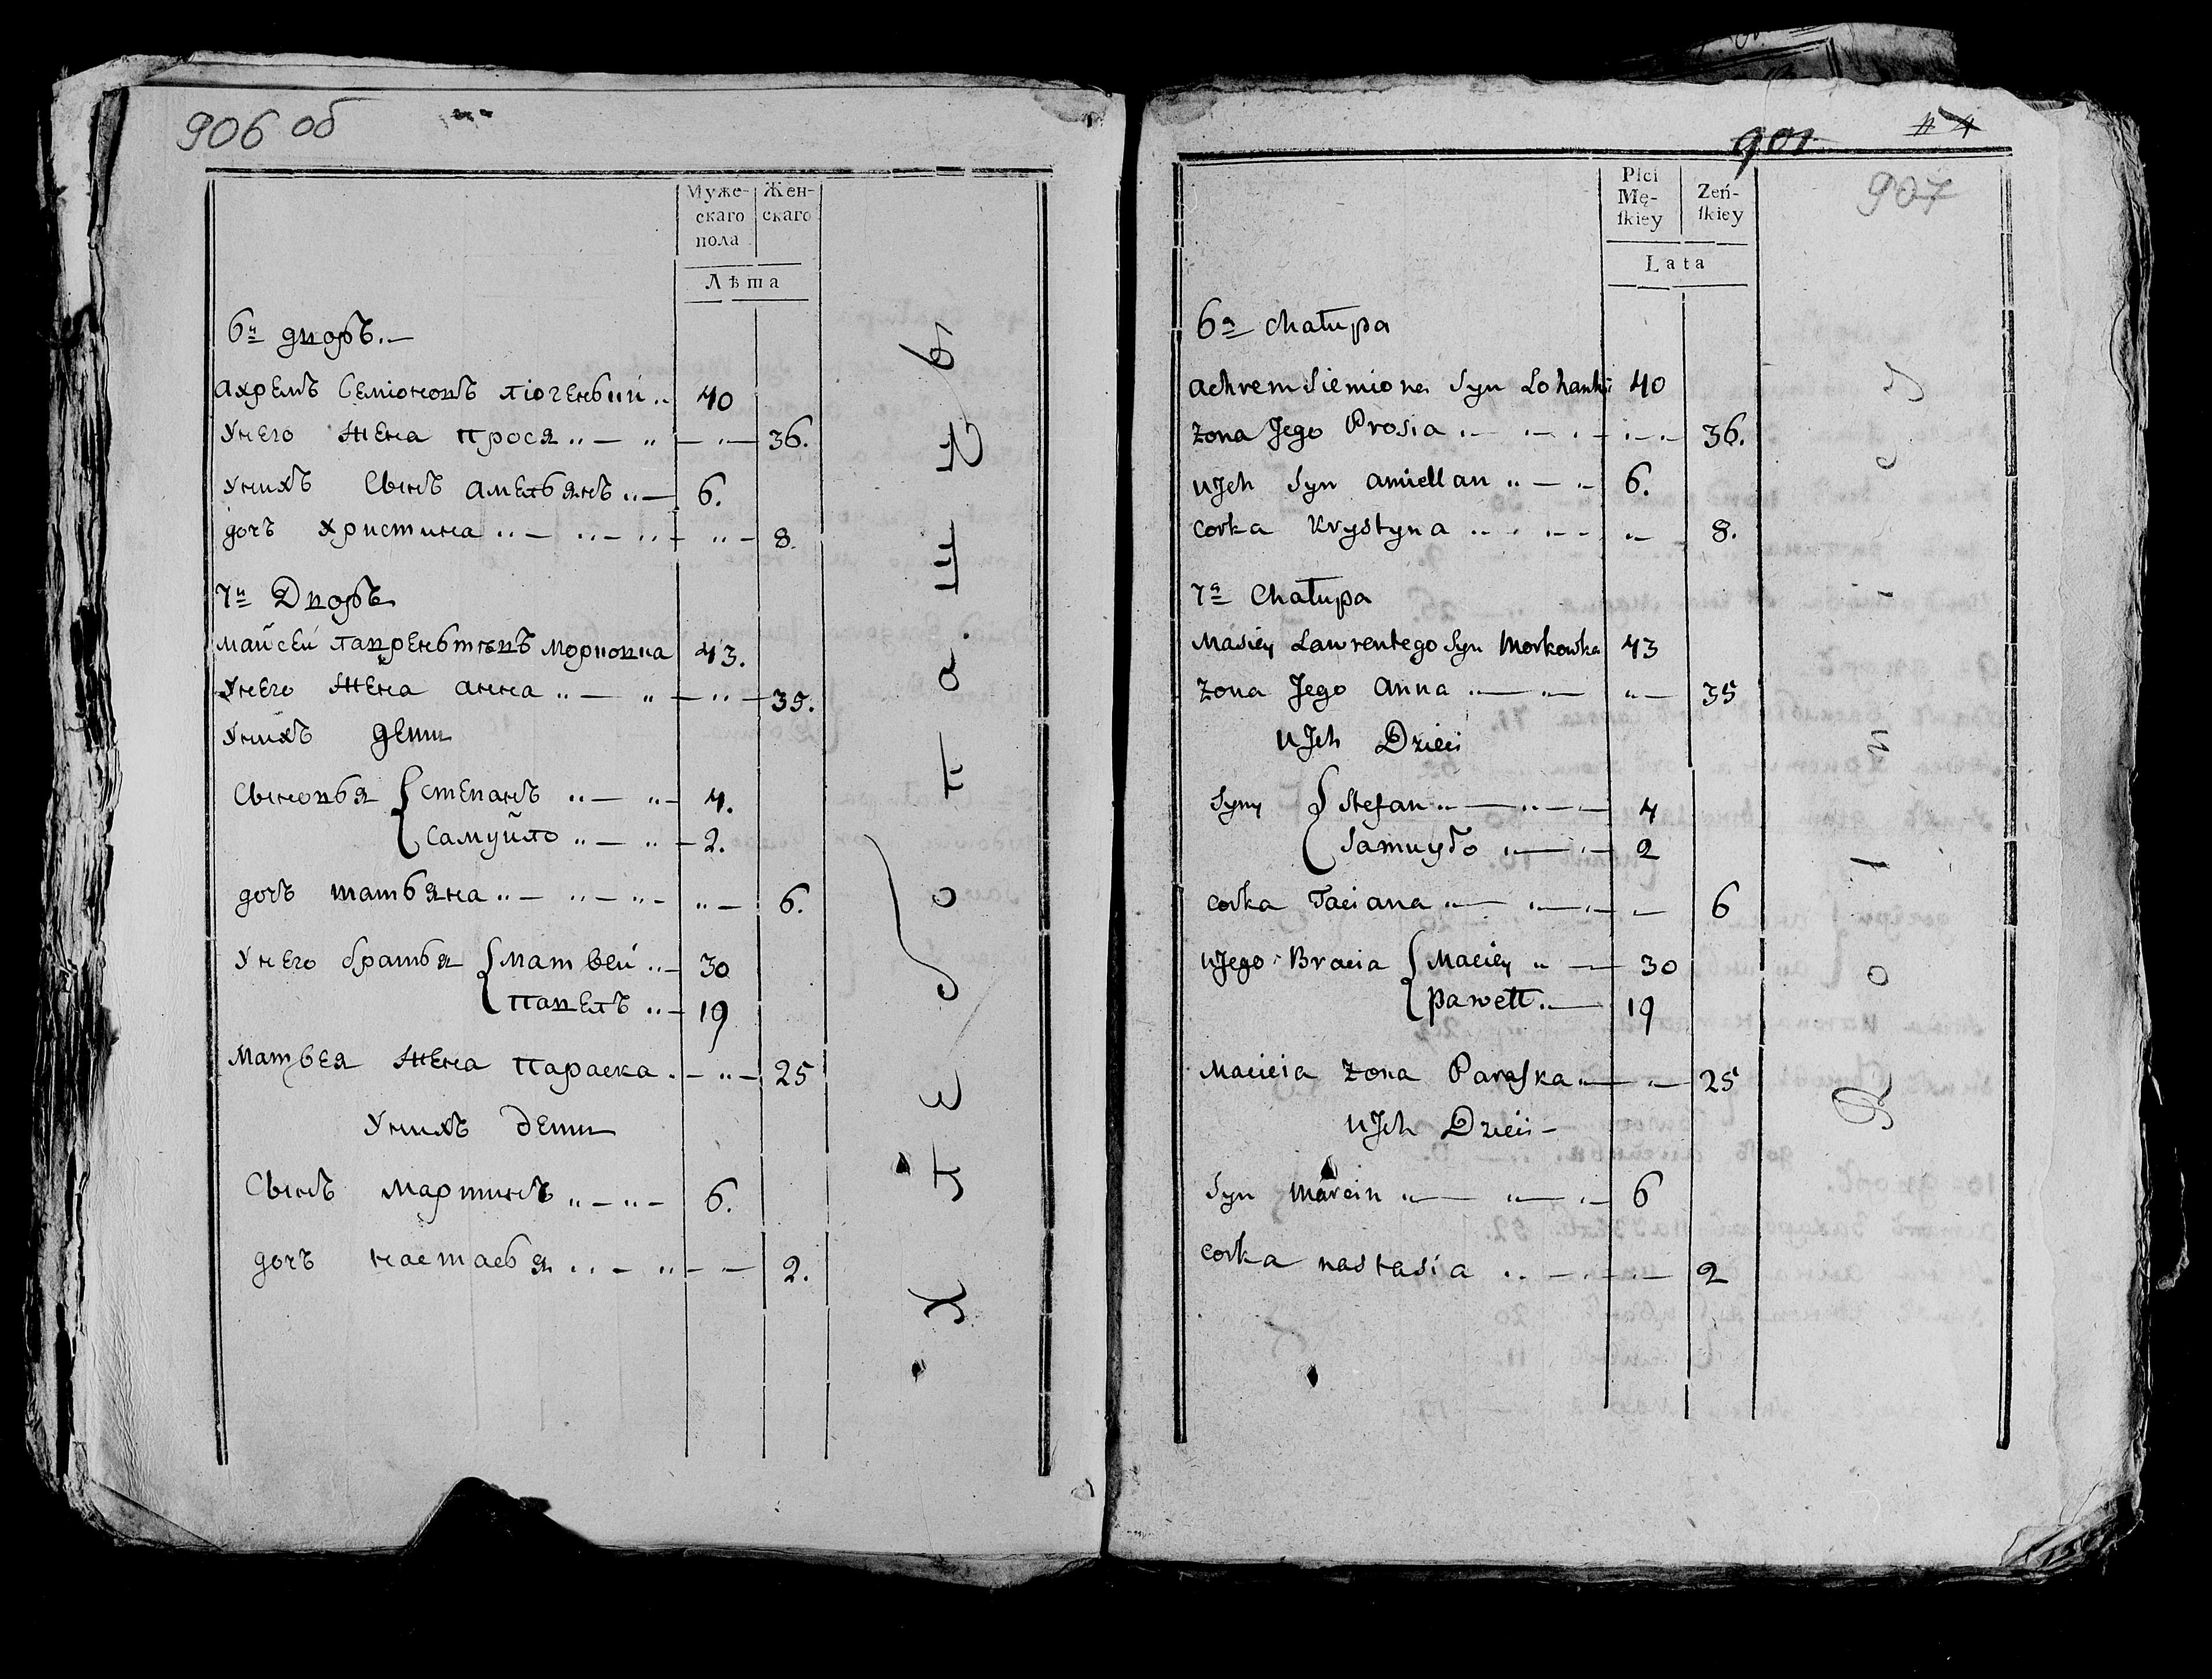 906 об
Муже-
скаго
пола
Жен-
скаго
Лѣта
6й дворъ.
Ахремъ Семіоновъ
40
Унего жена Прося
36.
Унихъ Сынъ Амельянъ
6.
дочъ Христина
8.
7й Дворъ
Майсей Лаврентьевъ Морковка
43.
Унего жена Анна
35.
Унихъ дети
Сыновья { Степанъ
4.
Самуйло
2.
дочъ Татьяна
6.
Унего братья { Матвей
30
Павелъ
19
Матвея жена Параска
25
Унихъ дети
Сынъ Мартинъ
6.
дочъ Настасья
2.
907
907
Płci
Mę-
ſkiey
Zeń-
ſkiey
Lata
6a Chałupa
Achrem Siemiona Syn
40
Zona Jego Prosia
36.
u Jch Syn Amiellan
6.
Corka Krystyna
8.
7a Chałupa
Masiey Lawrentego Syn Morkowka
43
Zona Jego Anna
35
u Jch Dzieci
Syny { Stefan
4
Samuyło
2
Corka Taciana
6
u Jego Bracia { Maciey
30
Pawełł
19
Macieia Zona Paraſka
25
u Jch Dzieci
Syn Marcin
6
Corka Nastasia
2